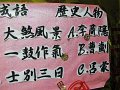 成語 歷史人物
大煞風景 A李商隱
一鼓作氣 B曹劌
士別三日 C呂蒙